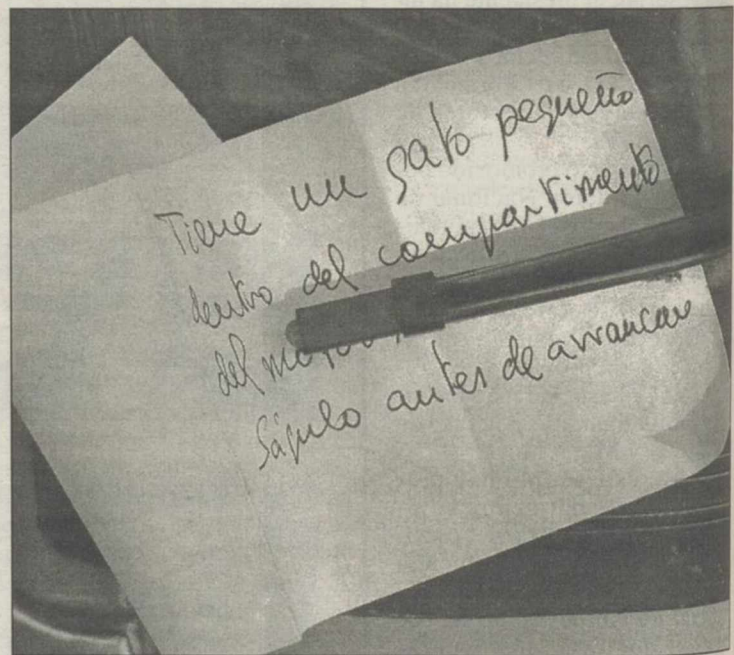 Tiene un gato pequeño
dentro del compartimento
del motor
Sáquelo antes de arrancar